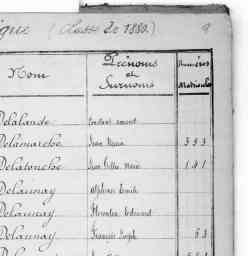 ique (Classe de 1880.) 9
Nom Prénoms et Surnoms Numéros Matricules
Delalande Constant
Delamarche Jean Marie 393
Delatouche Jean Marie 141
Delaunay Alphonse Emile
Delaunay Edouard
Delaunay François Joseph 63